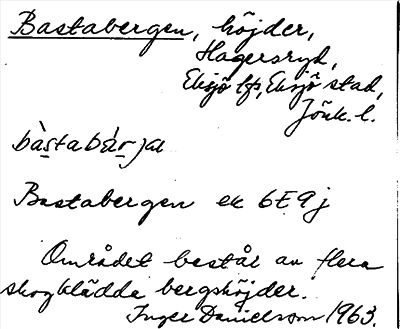 Bastabergen, höjder,
Hagersryd,
Eksjö lfs, Eksjö stad,
Jönk. l.
bàstabár̀ja
Bastabergen ek 6E9j
Området består av flera
skogklädda bergshöjder.
Inger Danielsson 1963.